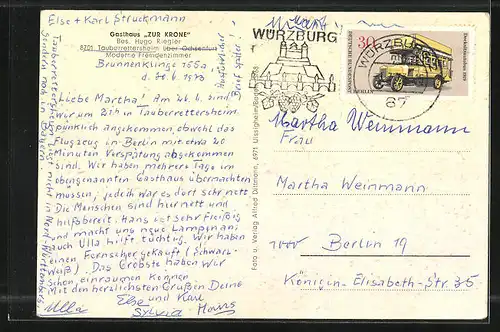 Else + Karl Struckmann
Gasthaus „ZUR KRONE"
Bes. Hugo Riegler
8701 Tauberrettersheim über Ochsenfurt
Moderne Fremdenzimmer
Brunnenklinge 155a
d. 30.6.1973
Brief später!
Liebe Martha! Am 26.6. sind
wir um 21h in Tauberrettersheim
pünklich angekommen obwohl das
Flugzeug in Berlin mit etwa 20
Minuten Verspätung abgekommen
sind. Wir haben mehrere Tage im
obengenannten Gasthaus übernachten
müssen; jedoch war es dort sehr nett
Die Menschen sind hier nett und
hilfsbereit. Hans ist sehr fleißig
und macht uns neue Lampen an,
auch Ulla hilft tüchtig. Wir haben
einen Fernseher gekauft (Schwarz-
Weiß). Das Größte haben wir
schon einräumen können
Mit den herzlichsten Grüßen Deine
Ulla Else und Karl
Sylvia Hans
Tauberrettersheim liegt nicht in Nord-Württemberg
sondern in Bayern
Foto u. Verlag Alfred Dittmann, 6971 Uissigheim/Baden
WÜRZBURG
WÜRZBURG
87
30
DEUTSCHE BUNDESPOST
BERLIN
Martha Weinmann
Frau
Martha Weinmann
1000 Berlin 19
Königin-Elisabeth-Str. 35